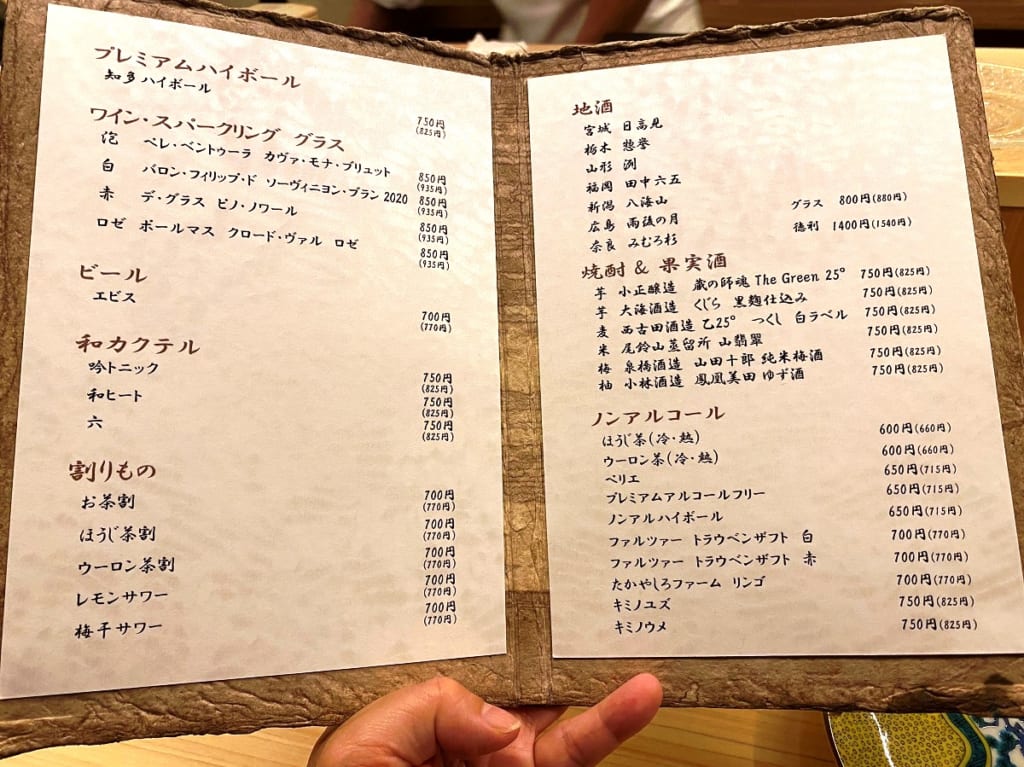 プレミアムハイボール
知多ハイボール 750円(825円)
ワイン・スパークリング グラス
泡 ベレ・ベントゥーラ カヴァ・モナ・ブリュット 850円(935円)
白 バロン・フィリップ・ド ソーヴィニヨン・ブラン 2020 850円(935円)
赤 デ・グラス ピノ・ノワール 850円(935円)
ロゼ ポールマス クロード・ヴァル ロゼ 850円(935円)
ビール
エビス 700円(770円)
和カクテル
吟トニック 750円(825円)
和ヒート 750円(825円)
六 750円(825円)
割りもの
お茶割 700円(770円)
ほうじ茶割 700円(770円)
ウーロン茶割 700円(770円)
レモンサワー 700円(770円)
梅干サワー 700円(770円)
地酒
宮城 日高見
栃木 惣誉
山形 洌
福岡 田中六五
新潟 八海山 グラス 800円(880円)
広島 雨後の月 徳利 1400円(1540円)
奈良 みむろ杉
焼酎 & 果実酒
芋 小正醸造 蔵の師魂 The Green 25° 750円(825円)
芋 大海酒造 くじら 黒麹仕込み 750円(825円)
麦 西吉田酒造 乙25° つくし 白ラベル 750円(825円)
米 尾鈴山蒸留所 山翡翠 750円(825円)
梅 泉橋酒造 山田十郎 純米梅酒 750円(825円)
柚 小林酒造 鳳凰美田 ゆず酒 750円(825円)
ノンアルコール
ほうじ茶(冷・熱) 600円(660円)
ウーロン茶(冷・熱) 600円(660円)
ペリエ 650円(715円)
プレミアムアルコールフリー 650円(715円)
ノンアルハイボール 650円(715円)
ファルツァー トラウベンザフト 白 700円(770円)
ファルツァー トラウベンザフト 赤 700円(770円)
たかやしろファーム リンゴ 700円(770円)
キミノユズ 750円(825円)
キミノウメ 750円(825円)